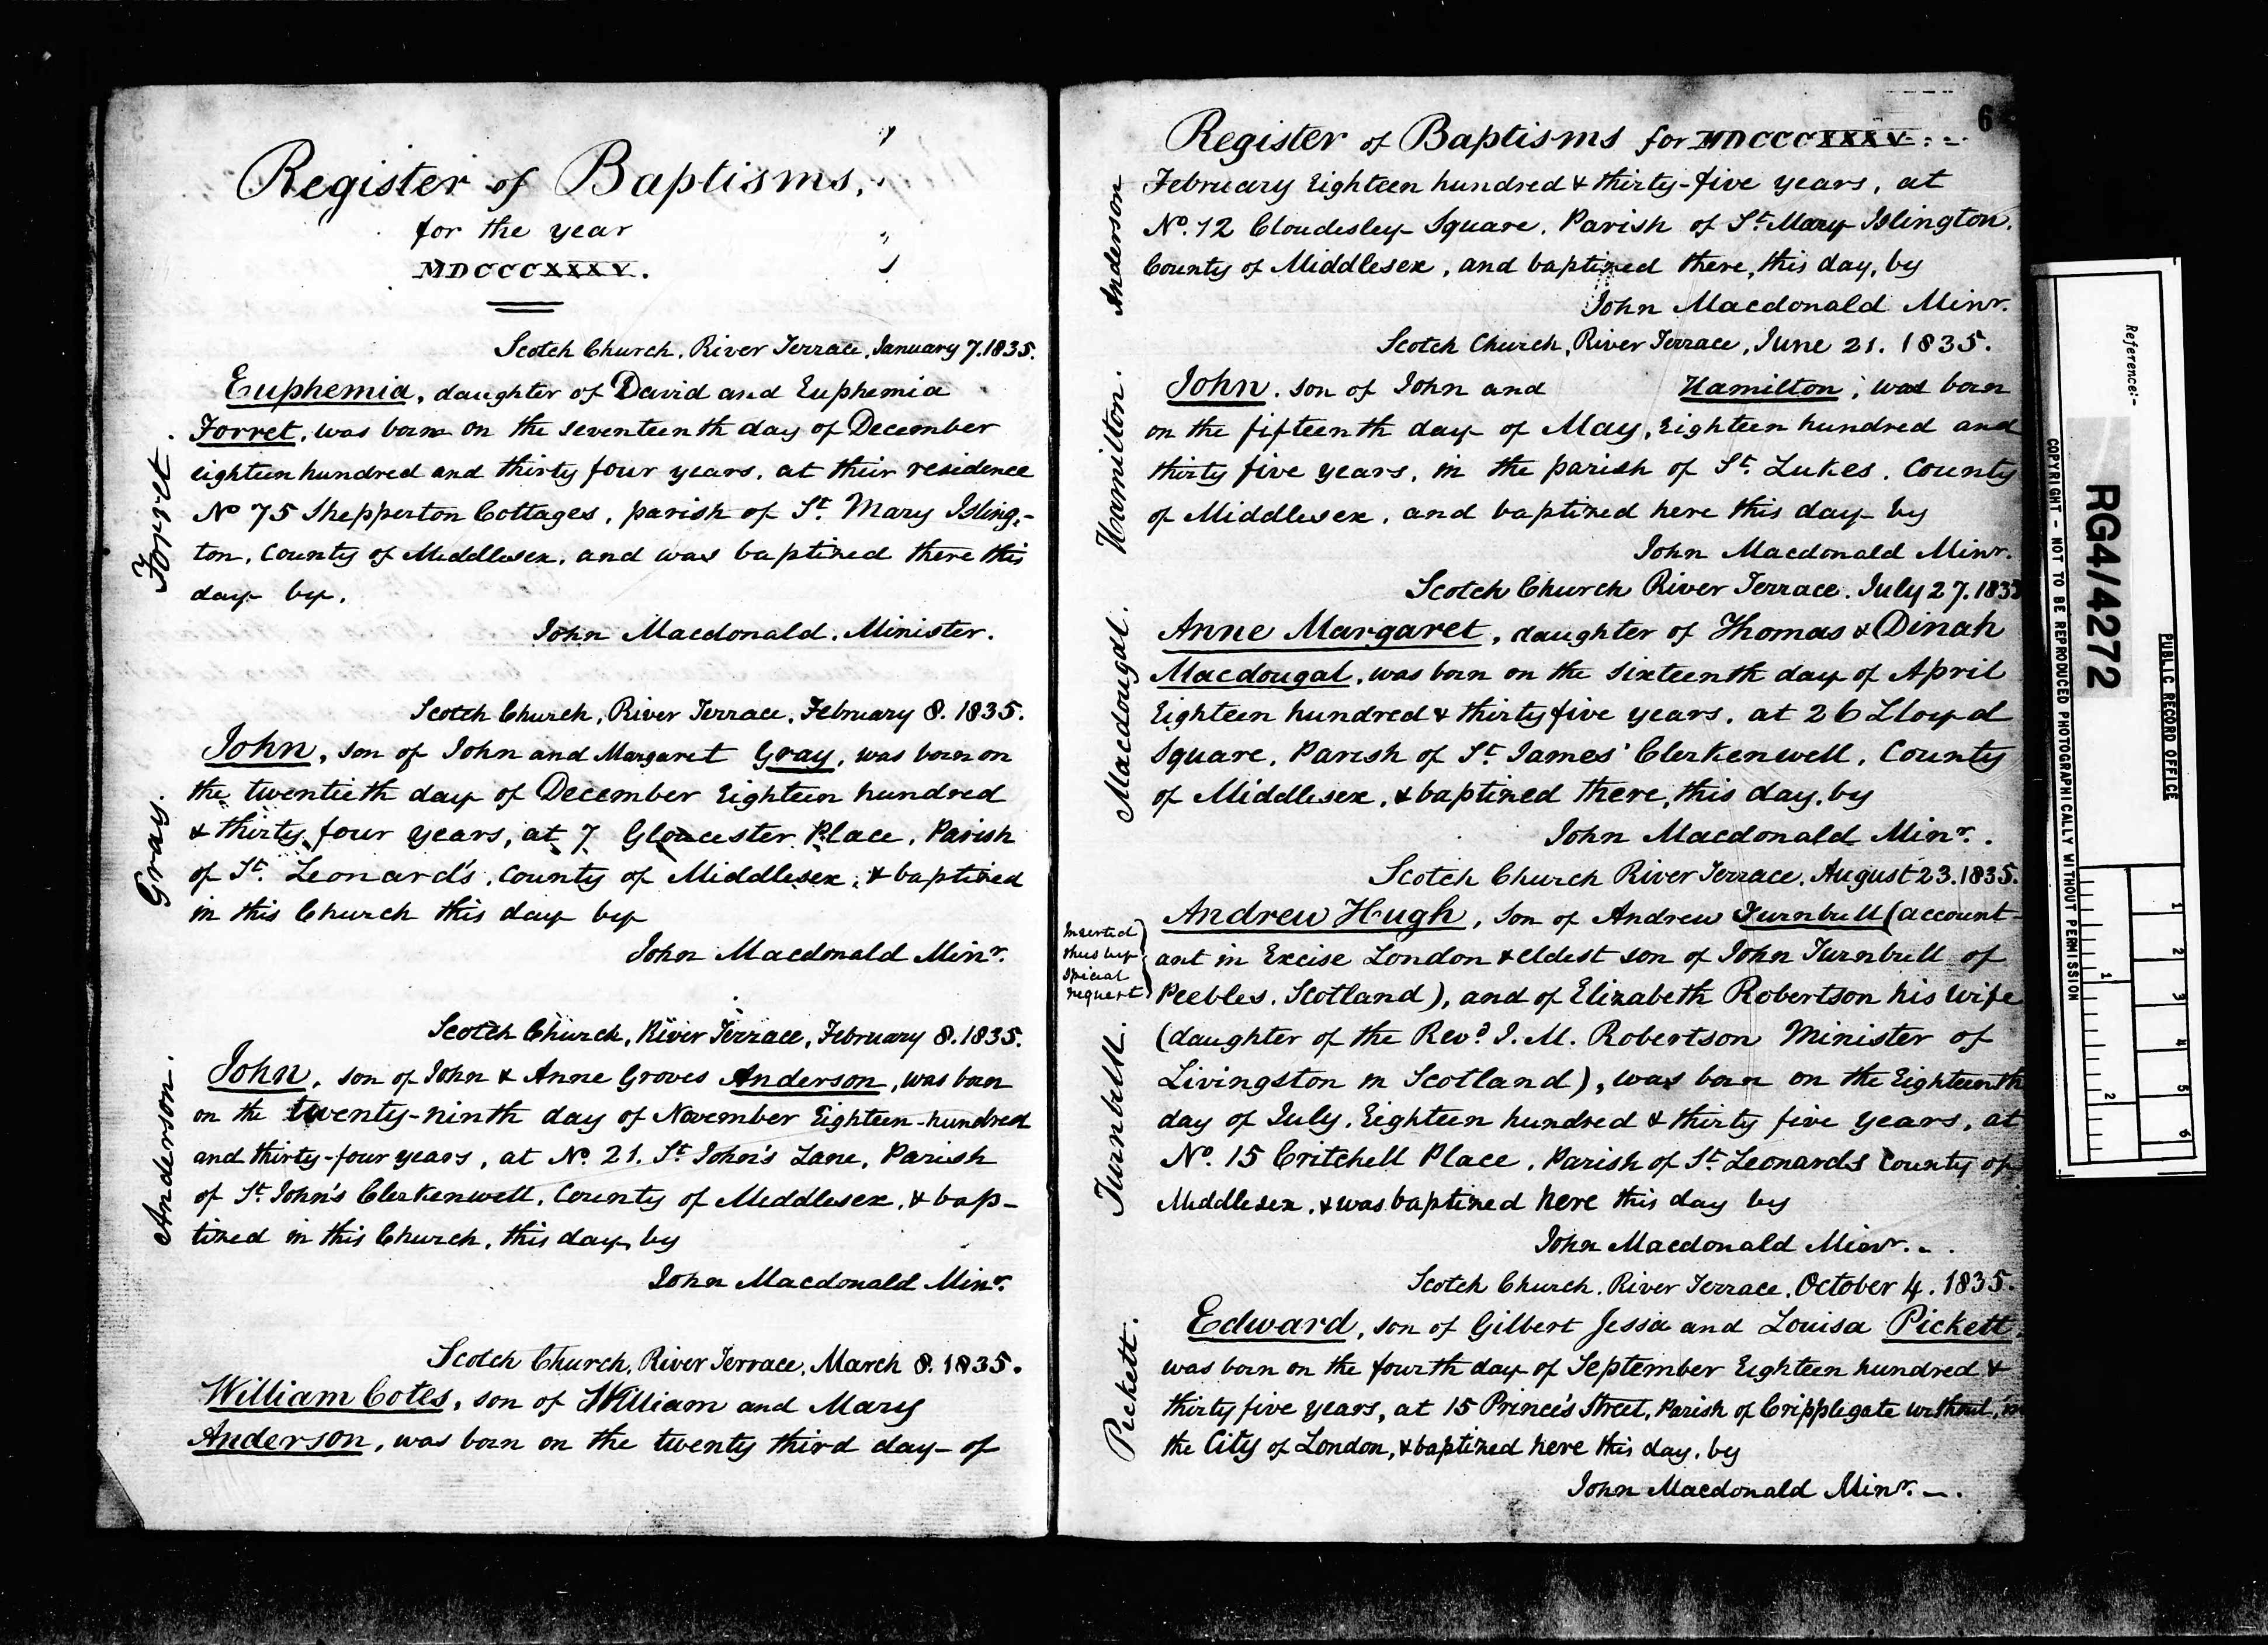 Register of Baptisms,
for the year
MDCCCXXXV.
Scotch Church, River Terrace, January 7. 1835.
Forret.
Euphemia, daughter of David and Euphemia
Forret, was born on the seventeenth day of December
eighteen hundred and thirty four years, at their residence
No 75 Shepperton Cottages, parish of St. Mary Isling-
ton, County of Middlesex, and was baptized there this
day by.
John Macdonald. Minister.
Scotch Church, River Terrace, February 8. 1835.
Gray.
John, son of John and Margaret Gray, was born on
the twentieth day of December Eighteen hundred
& thirty four years, at 7 Gloucester Place, Parish
of St. Leonard's, County of Middlesex, & baptized
in this Church this day by
John Macdonald Minr.
Scotch Church, River Terrace, February 8. 1835.
Anderson.
John, son of John & Anne Groves Anderson, was born
on the twenty-ninth day of November Eighteen-hundred
and thirty-four years, at No. 21. St John's Lane, Parish
of St John's Clerkenwell, County of Middlesex, & bap-
tized in this Church, this day, by
John Macdonald Minr.
Scotch Church, River Terrace, March 8. 1835.
William Cotes, son of William and Mary
Anderson, was born on the twenty third day of
6
Register of Baptisms for MDCCCXXXV.
Anderson
February Eighteen hundred & thirty-five years, at
No. 12 Cloudesley Square, Parish of St. Mary Islington,
County of Middlesex, and baptized there, this day, by
John Macdonald Minr.
Scotch Church, River Terrace, June 21. 1835.
Hamilton.
John, son of John and Hamilton, was born
on the fifteenth day of May, Eighteen hundred and
thirty five years, in the parish of St. Lukes, County
of Middlesex, and baptized here this day by
John Macdonald Minr.
Scotch Church River Terrace. July 27. 1835
Macdougal.
Anne Margaret, daughter of Thomas & Dinah
Macdougal, was born on the sixteenth day of April
Eighteen hundred & thirty five years, at 26 Lloyd
Square, Parish of St James' Clerkenwell, County
of Middlesex, & baptized there, this day, by
John Macdonald Minr.
Scotch Church River Terrace, August 23. 1835.
Inserted
thus by
special
request
Turnbull.
Andrew Hugh, son of Andrew Turnbull (account-
ant in Excise London & eldest son of John Turnbull of
Peebles, Scotland), and of Elizabeth Robertson his wife
(daughter of the Revd. J. M. Robertson Minister of
Livingston in Scotland), was born on the Eighteenth
day of July, Eighteen hundred & thirty five years, at
No. 15 Critchell Place, Parish of St Leonards County of
Middlesex, & was baptized here this day by
John Macdonald Minr.
Scotch Church, River Terrace, October 4. 1835.
Pickett.
Edward, son of Gilbert Jessia and Louisa Pickett,
was born on the fourth day of September Eighteen hundred &
thirty five years, at 15 Prince's Street, Parish of Cripplegate without, in
the City of London, & baptized here this day, by
John Macdonald Minr.
Reference:-
RG4/4272
PUBLIC RECORD OFFICE
COPYRIGHT - NOT TO BE REPRODUCED PHOTOGRAPHICALLY WITHOUT PERMISSION
1
2
3
4
5
6
1
2